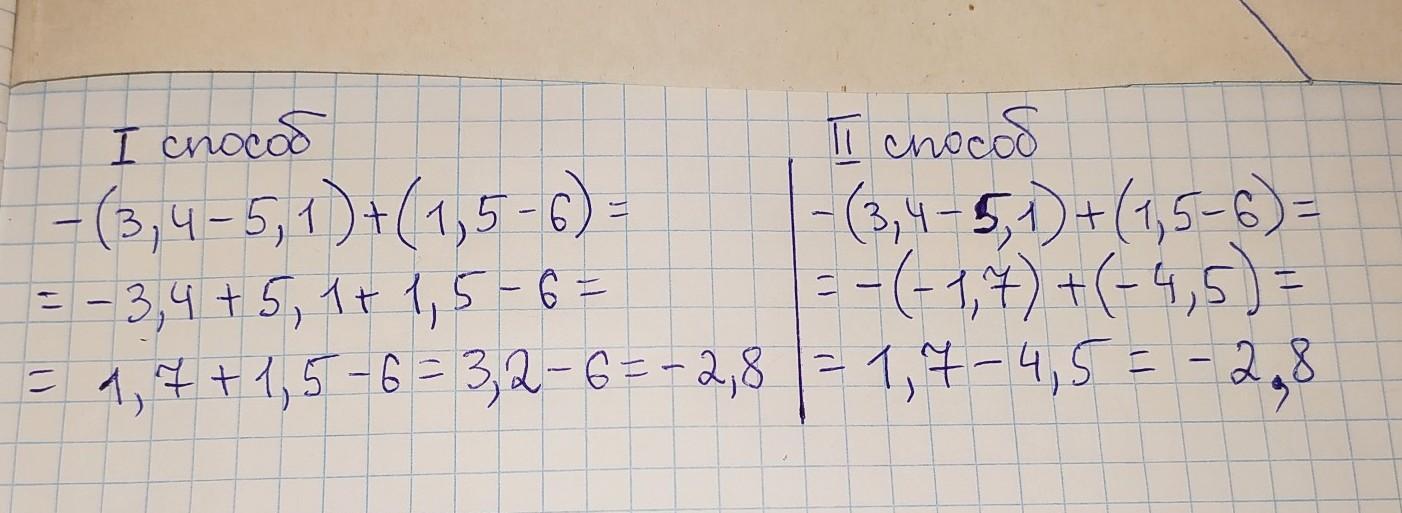 I способ
-(3,4-5,1)+(1,5-6)=
=-3,4+5,1+1,5-6=
=1,7+1,5-6=3,2-6=-2,8
II способ
-(3,4-5,1)+(1,5-6)=
=-(-1,7)+(-4,5)=
=1,7-4,5=-2,8